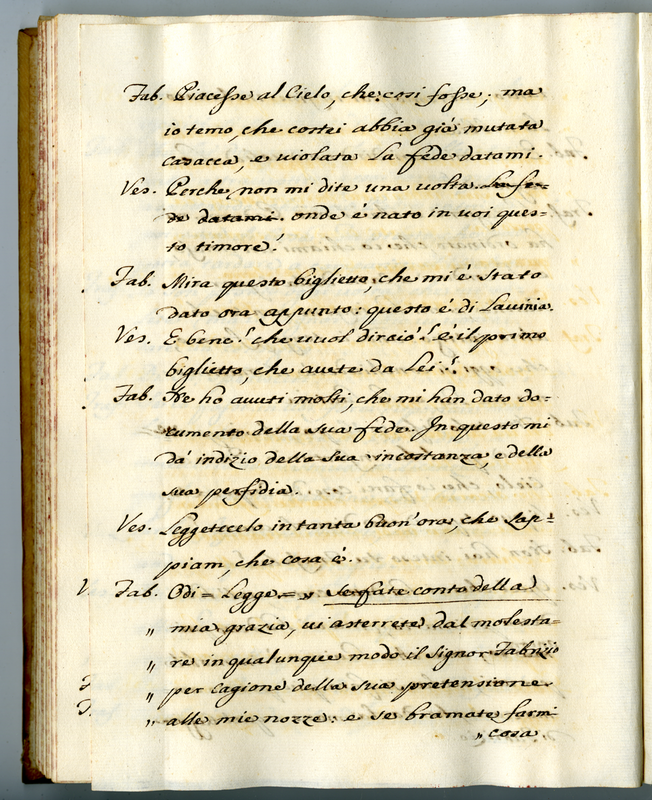 Fab. Piacesse al Cielo, che così fosse; ma
io temo, che costei abbia già mutata
casacca, e violata la fede datami.
Ves. Perche non mi dite una volta la fe-
de datami. onde è nato in voi ques-
to timore?
Fab. Mira questo biglietto, che mi è stato
dato ora appunto: questo è di Lavinia.
Ves. E bene? che vuol dir ciò? è il primo
biglietto, che avete da Lei?
Fab. Ne ho avuti molti, che mi han dato do-
cumento della sua fede. In questo mi
dà indizio della sua incostanza, e della
sua perfidia.
Ves. Leggetecelo in tanta buon'ora, che sap-
piam, che cosa è.
V. Fab. Odi = Legge = „ Se fate conto della
„ mia grazia, vi asterrete dal molesta-
„ re in qualunque modo il Signor Fabrizio
„ per cagione della sua pretensione
„ alle mie nozze: e se bramate farmi
„ cosa